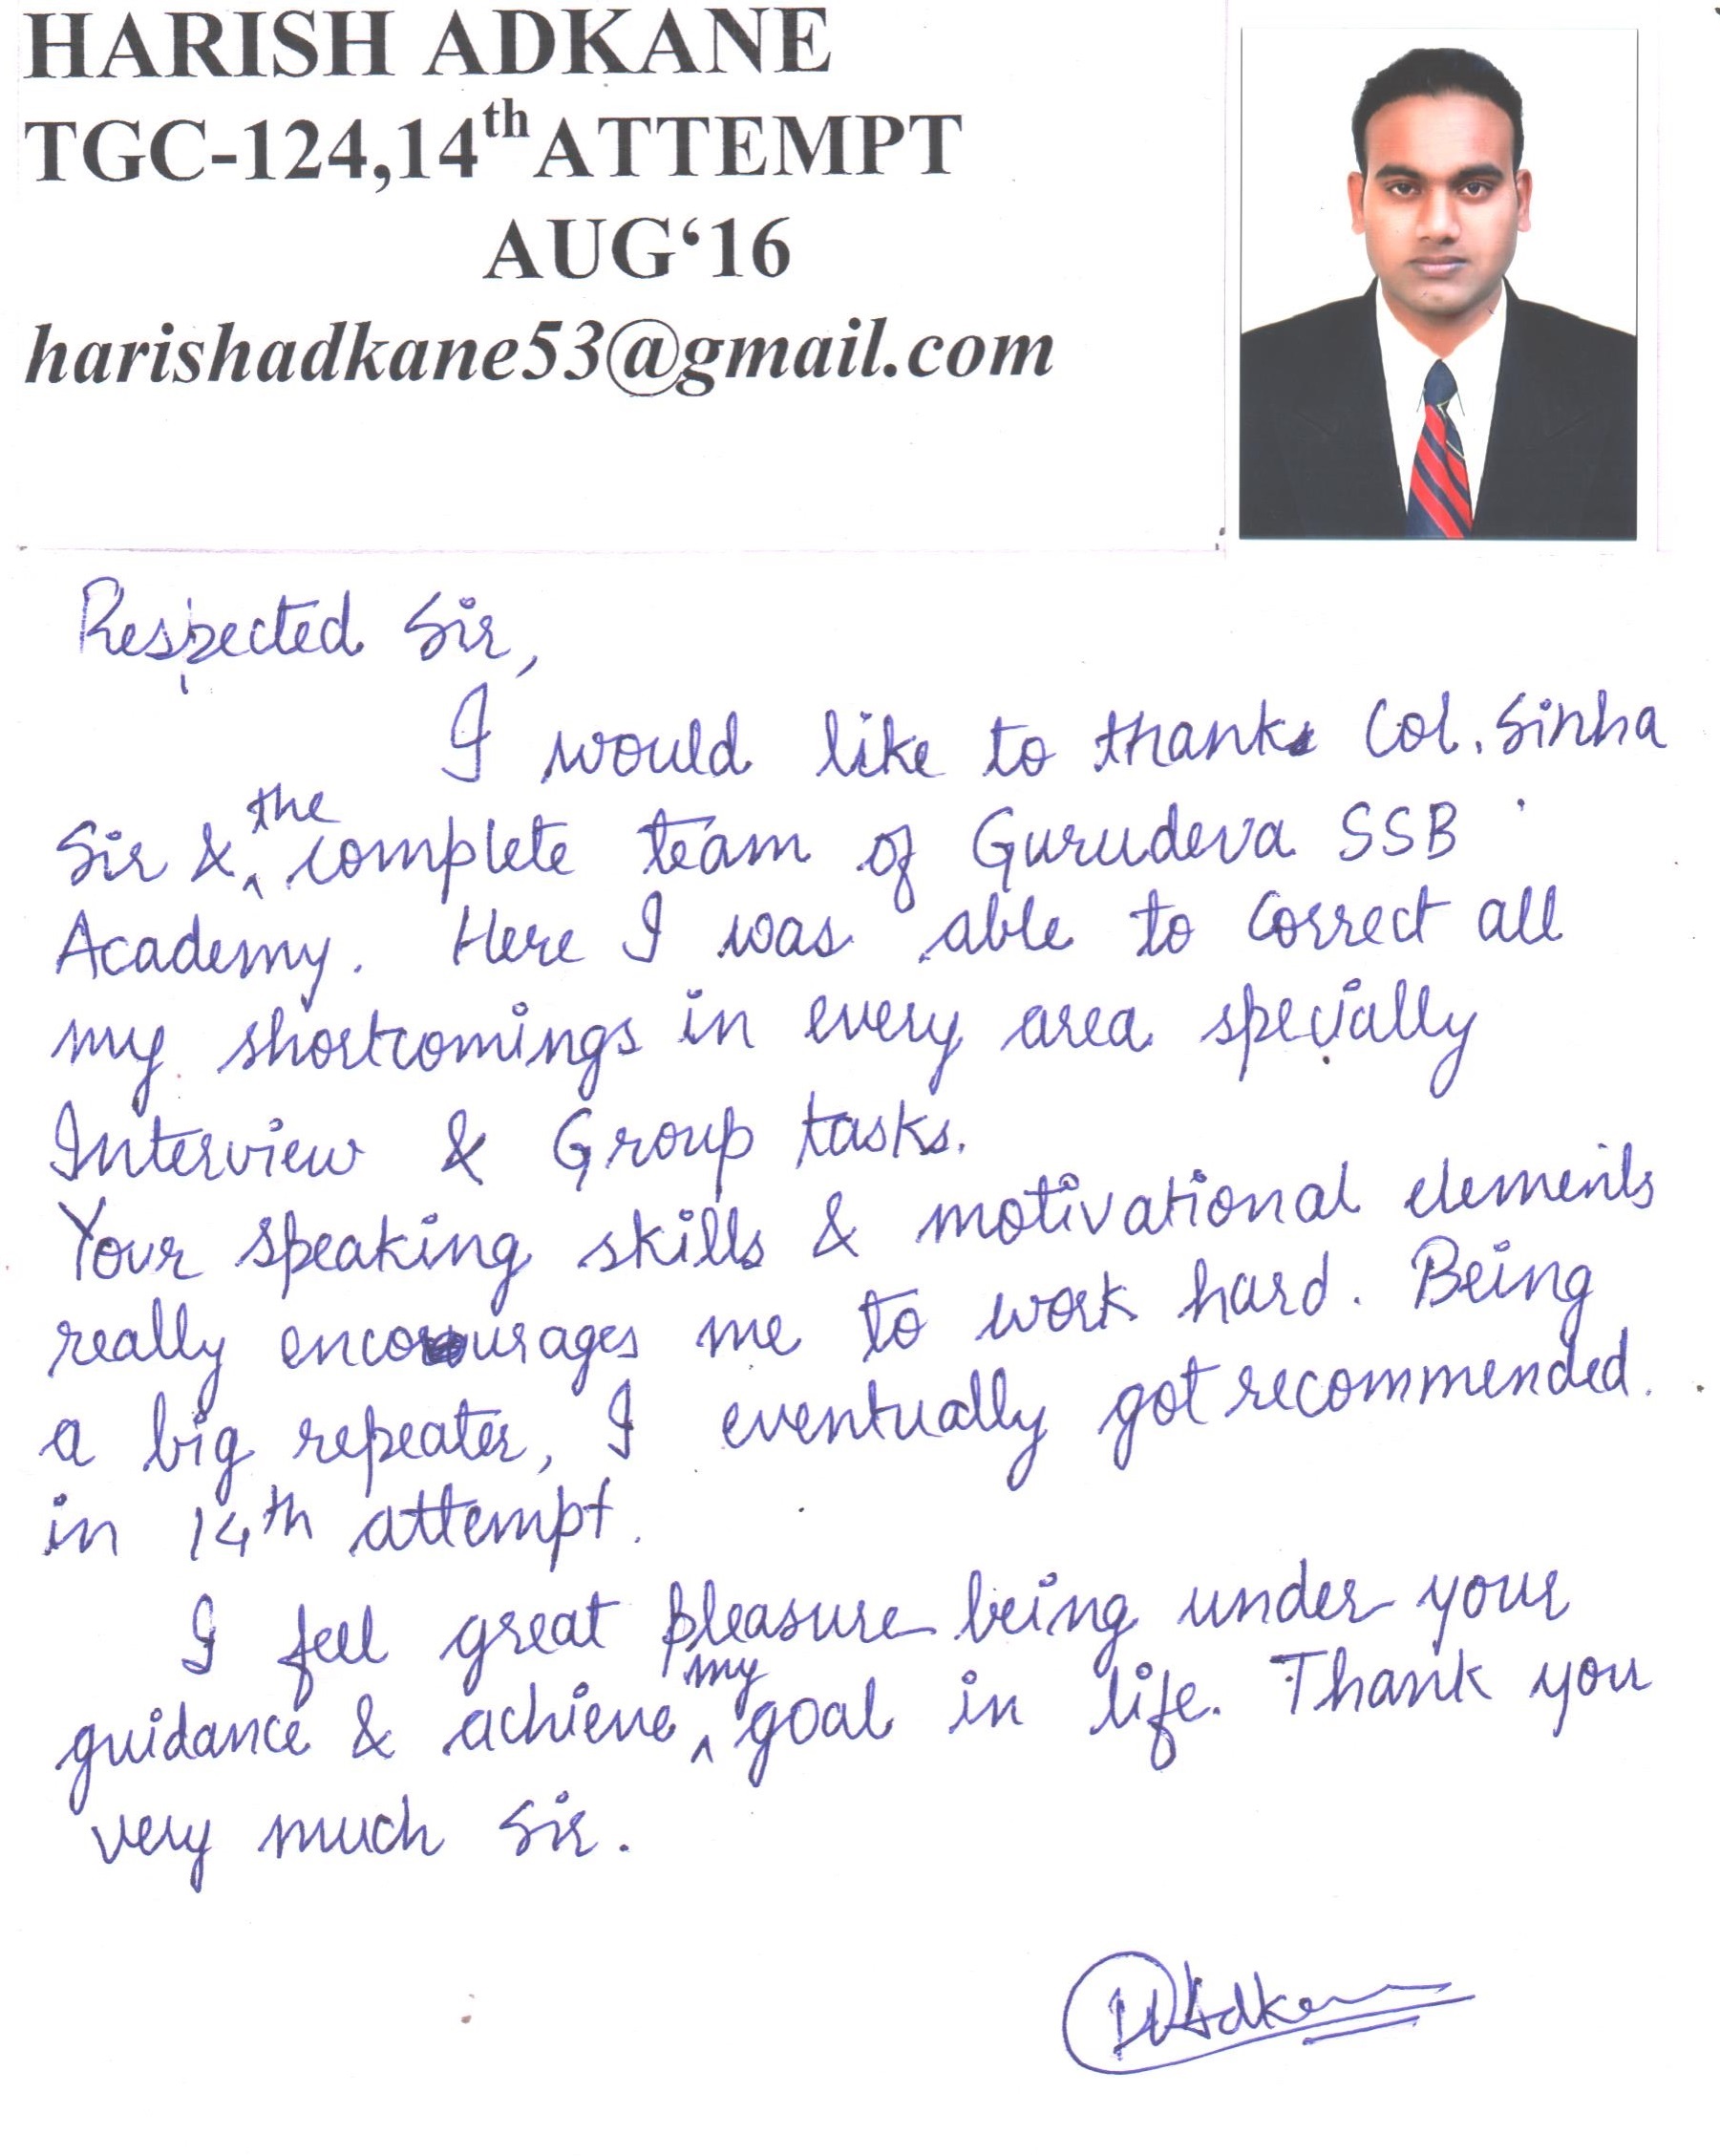 HARISH ADKANE
TGC-124,14th ATTEMPT
AUG‘16
harishadkane53@gmail.com
Respected Sir,
I would like to thank Col. Sinha
Sir & the complete team of Gurudeva SSB
Academy. Here I was able to correct all
my shortcomings in every area specially
Interview & Group tasks.
Your speaking skills & motivational elements
really encourages me to work hard. Being
a big repeater, I eventually got recommended.
in 14th attempt.
I feel great pleasure being under your
guidance & achieve my goal in life. Thank you
very much Sir.
HAdkane